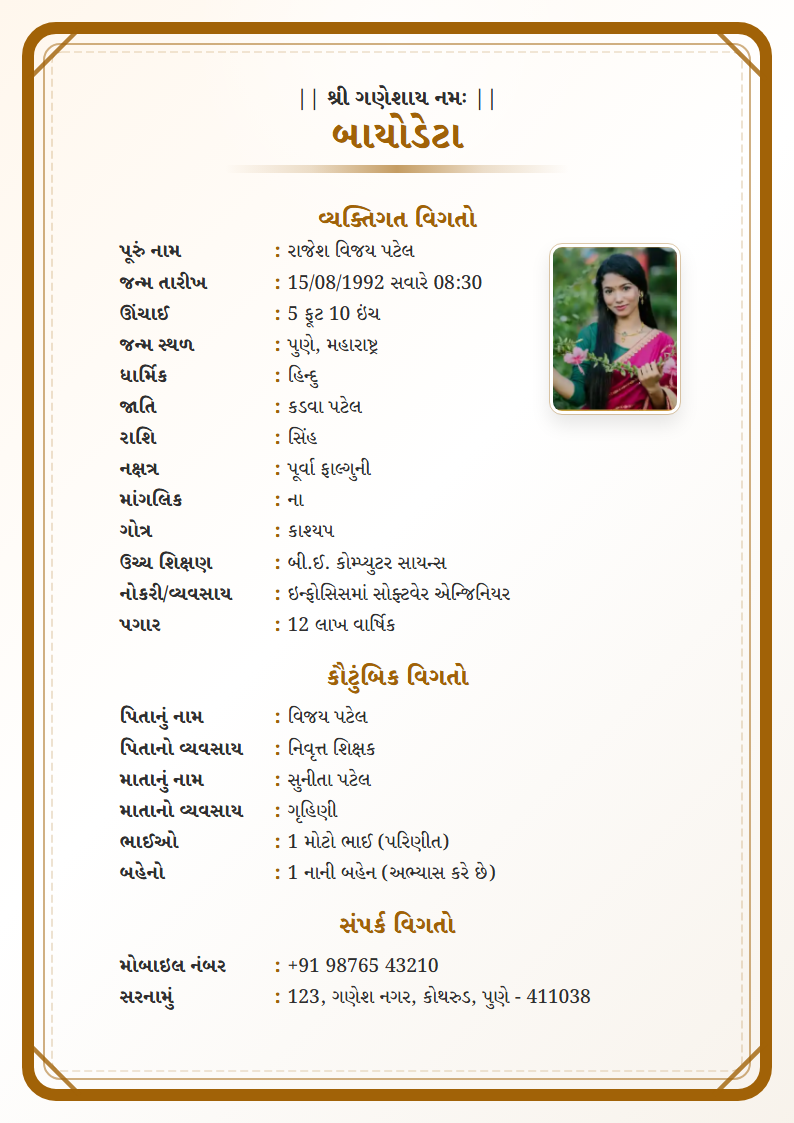 || શ્રી ગણેશાય નમઃ ||
બાયોડેટા
વ્યક્તિગત વિગતો
પૂરું નામ : રાજેશ વિજય પટેલ
જન્મ તારીખ : 15/08/1992 સવારે 08:30
ઊંચાઈ : 5 ફૂટ 10 ઇંચ
જન્મ સ્થળ : પુણે, મહારાષ્ટ્ર
ધાર્મિક : હિન્દુ
જાતિ : કડવા પટેલ
રાશિ : સિંહ
નક્ષત્ર : પૂર્વા ફાલ્ગુની
માંગલિક : ના
ગોત્ર : કાશ્યપ
ઉચ્ચ શિક્ષણ : બી.ઈ. કોમ્પ્યુટર સાયન્સ
નોકરી/વ્યવસાય : ઇન્ફોસિસમાં સોફ્ટવેર એન્જિનિયર
પગાર : 12 લાખ વાર્ષિક
કૌટુંબિક વિગતો
પિતાનું નામ : વિજય પટેલ
પિતાનો વ્યવસાય : નિવૃત્ત શિક્ષક
માતાનું નામ : સુનીતા પટેલ
માતાનો વ્યવસાય : ગૃહિણી
ભાઈઓ : 1 મોટો ભાઈ (પરિણીત)
બહેનો : 1 નાની બહેન (અભ્યાસ કરે છે)
સંપર્ક વિગતો
મોબાઇલ નંબર : +91 98765 43210
સરનામું : 123, ગણેશ નગર, કોથરુડ, પુણે - 411038